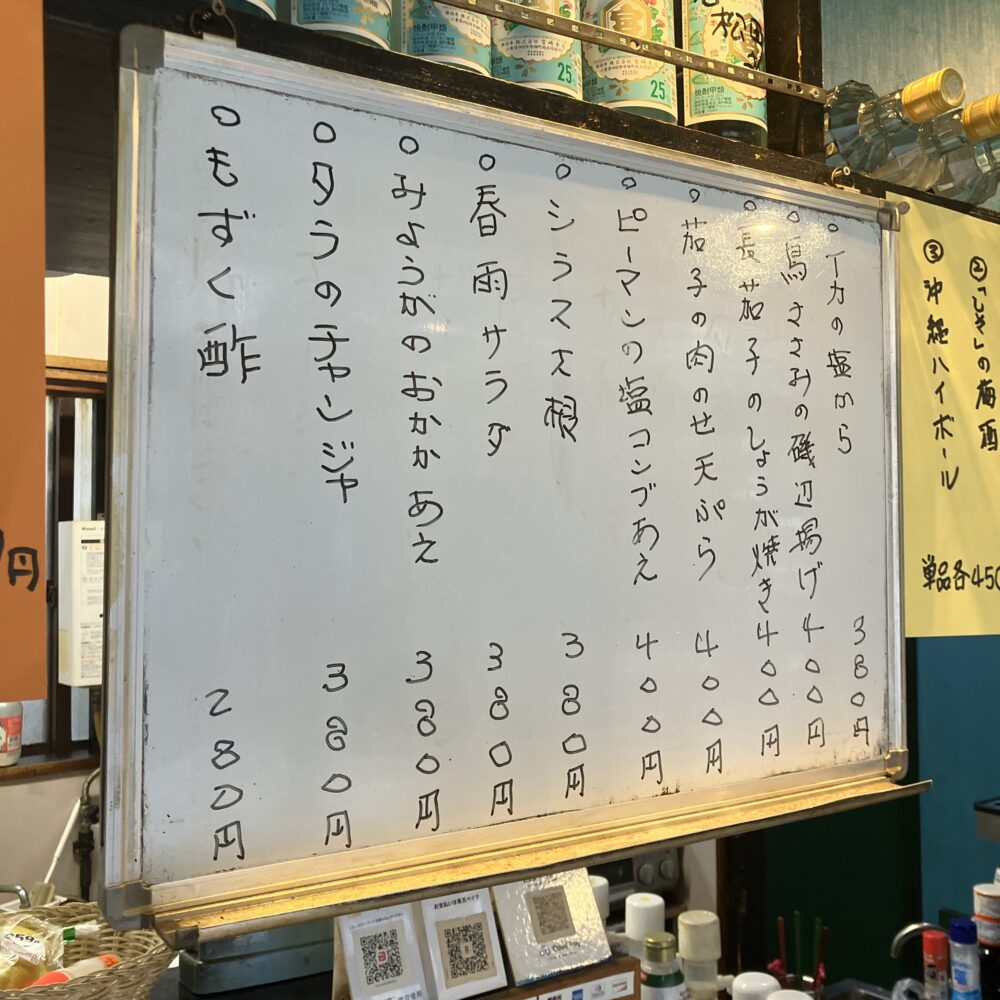 ○イカの塩から 380円
○鳥ささみの磯辺揚げ 400円
○長茄子のしょうが焼き 400円
○茄子の肉のせ天ぷら 400円
○ピーマンの塩コンブあえ 400円
○シラス大根 380円
○春雨サラダ 380円
○みょうがのおかかあえ 380円
○タラのチャンジャ 380円
○もずく酢 280円
②「しそ」の梅酒
③沖縄ハイボール
単品各450
円
25
25